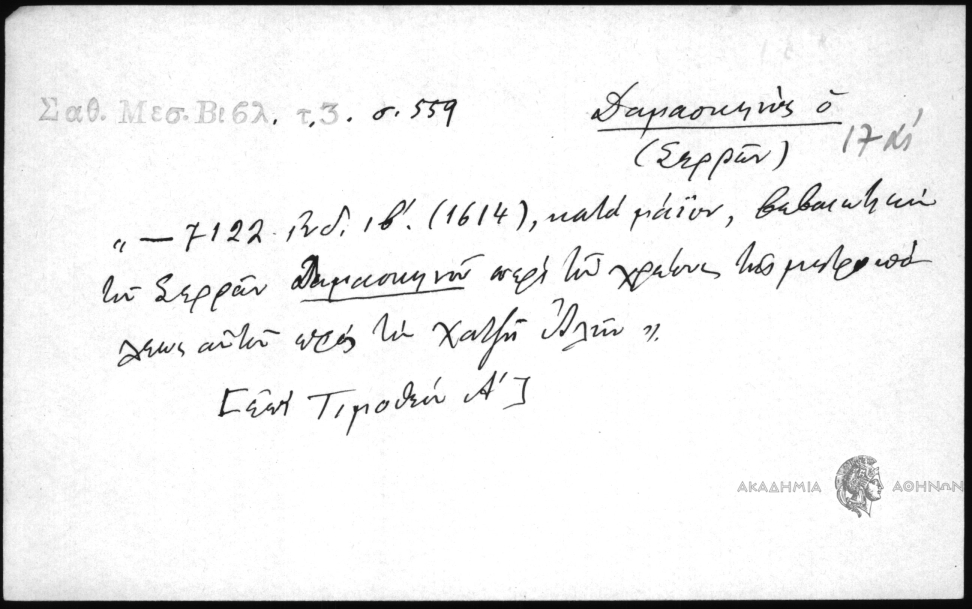 Σαθ. Μεσ. Βιβλ. τ. 3. σ. 559
Δαμασκηνὸς ὁ
(Σερρῶν)
17 α΄
« — 7122 ἰνδ. ιβ΄. (1614), κατὰ μάϊον, βεβαιωτικὴ
τοῦ Σερρῶν Δαμασκηνοῦ περὶ τοῦ χρέους τῆς μητροπό
λεως αὐτοῦ πρὸς τὸν Χατζῆ Ἀλῆν ».
[ἐπὶ Τιμοθέου Α΄]
ΑΚΑΔΗΜΙΑ ΑΘΗΝΩΝ